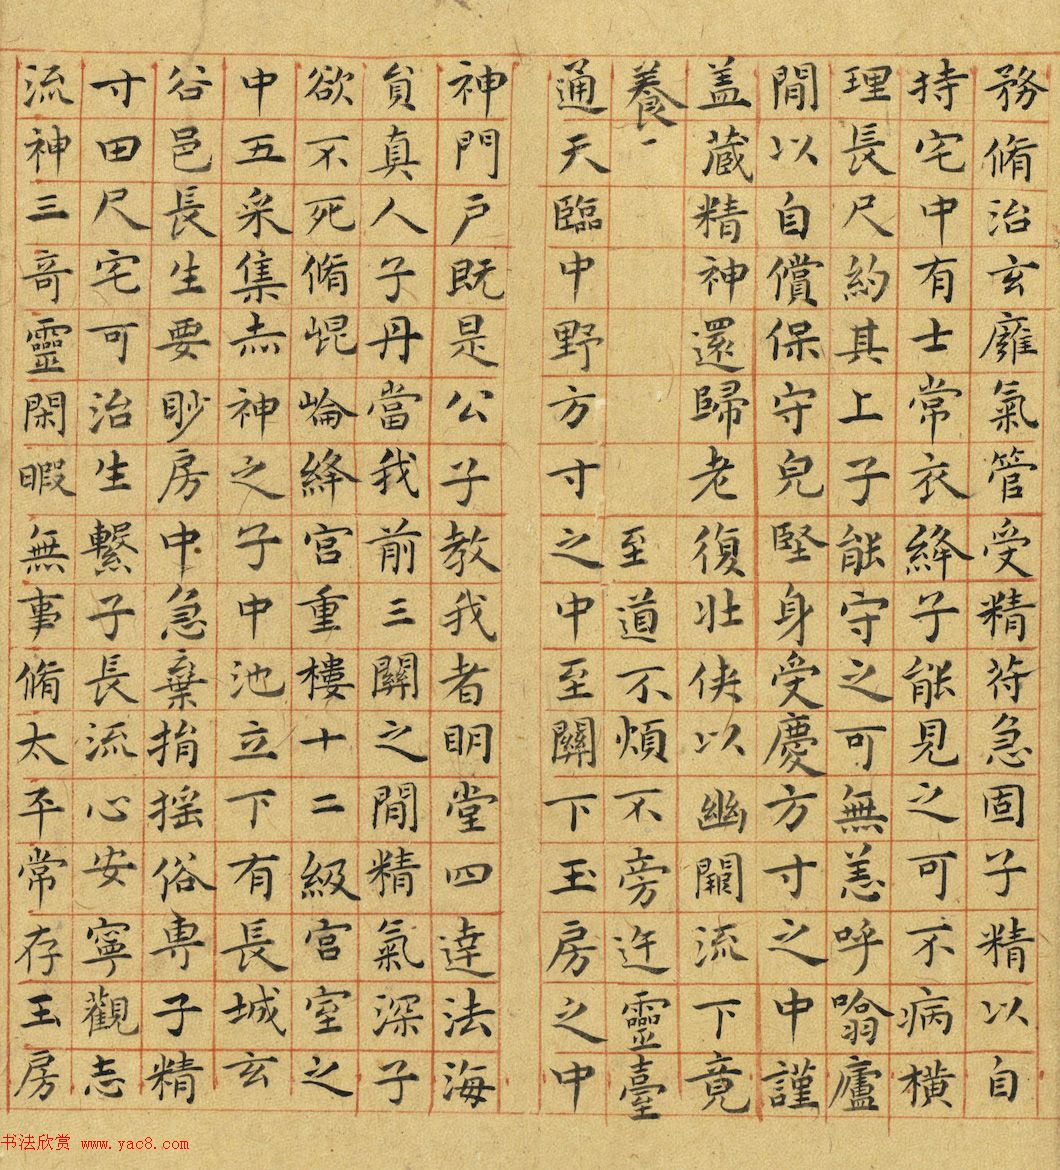 務脩治玄廱氣管受精符急固子精以自
持宅中有士常衣絳子能見之可不病橫
理長尺約其上子能守之可無恙呼噏廬
閒以自償保守皃堅身受慶方寸之中謹
盖藏精神還歸老復壯侠以幽闕流下竟
養一至道不煩不旁迕靈臺
通天臨中野方寸之中至關下玉房之中
神門戶既是公子教我者明堂四達法海
貟真人子丹當我前三關之閒精氣深子
欲不死脩崐崘絳宮重樓十二級宮室之
中五采集赤神之子中池立下有長城玄
谷邑長生要眇房中急棄捐搖俗専子精
寸田尺宅可治生繫子長流心安寧觀志
流神三竒靈閑暇無事脩太平常存玉房
书法欣赏 www.yac8.com